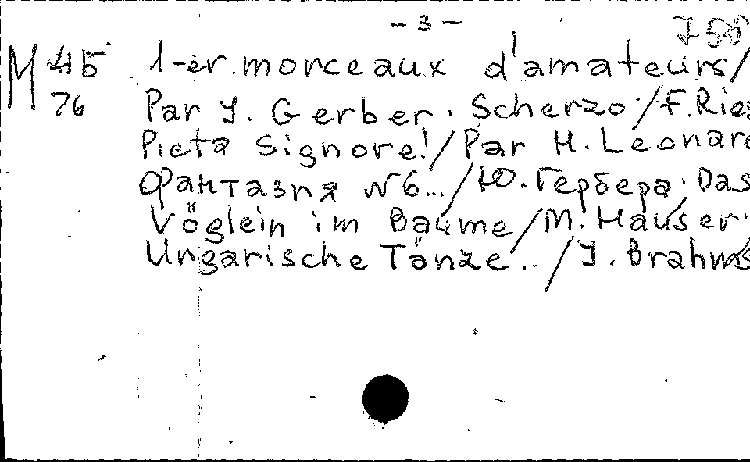 - 3 -
M 45 1-er morceaux d'amateurs/
76 Par J. Gerber. Scherzo/F. Ries
Pieta Signore!/Par H. Leonard
Фантазия №6../Ю. Гербера. Das
Vöglein im Baume/M. Hauser.
Ungarische Tänze../J. Brahms